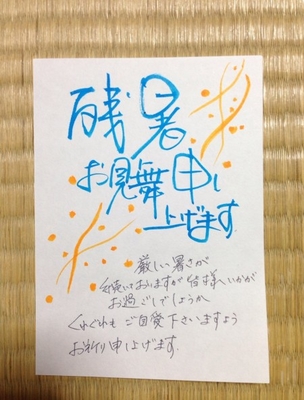 残暑
お見舞申し
上げます
厳しい暑さが
続いておりますが皆様いかが
お過ごしでしょうか
くれぐれも ご自愛下さいますよう
お祈り申し上げます.